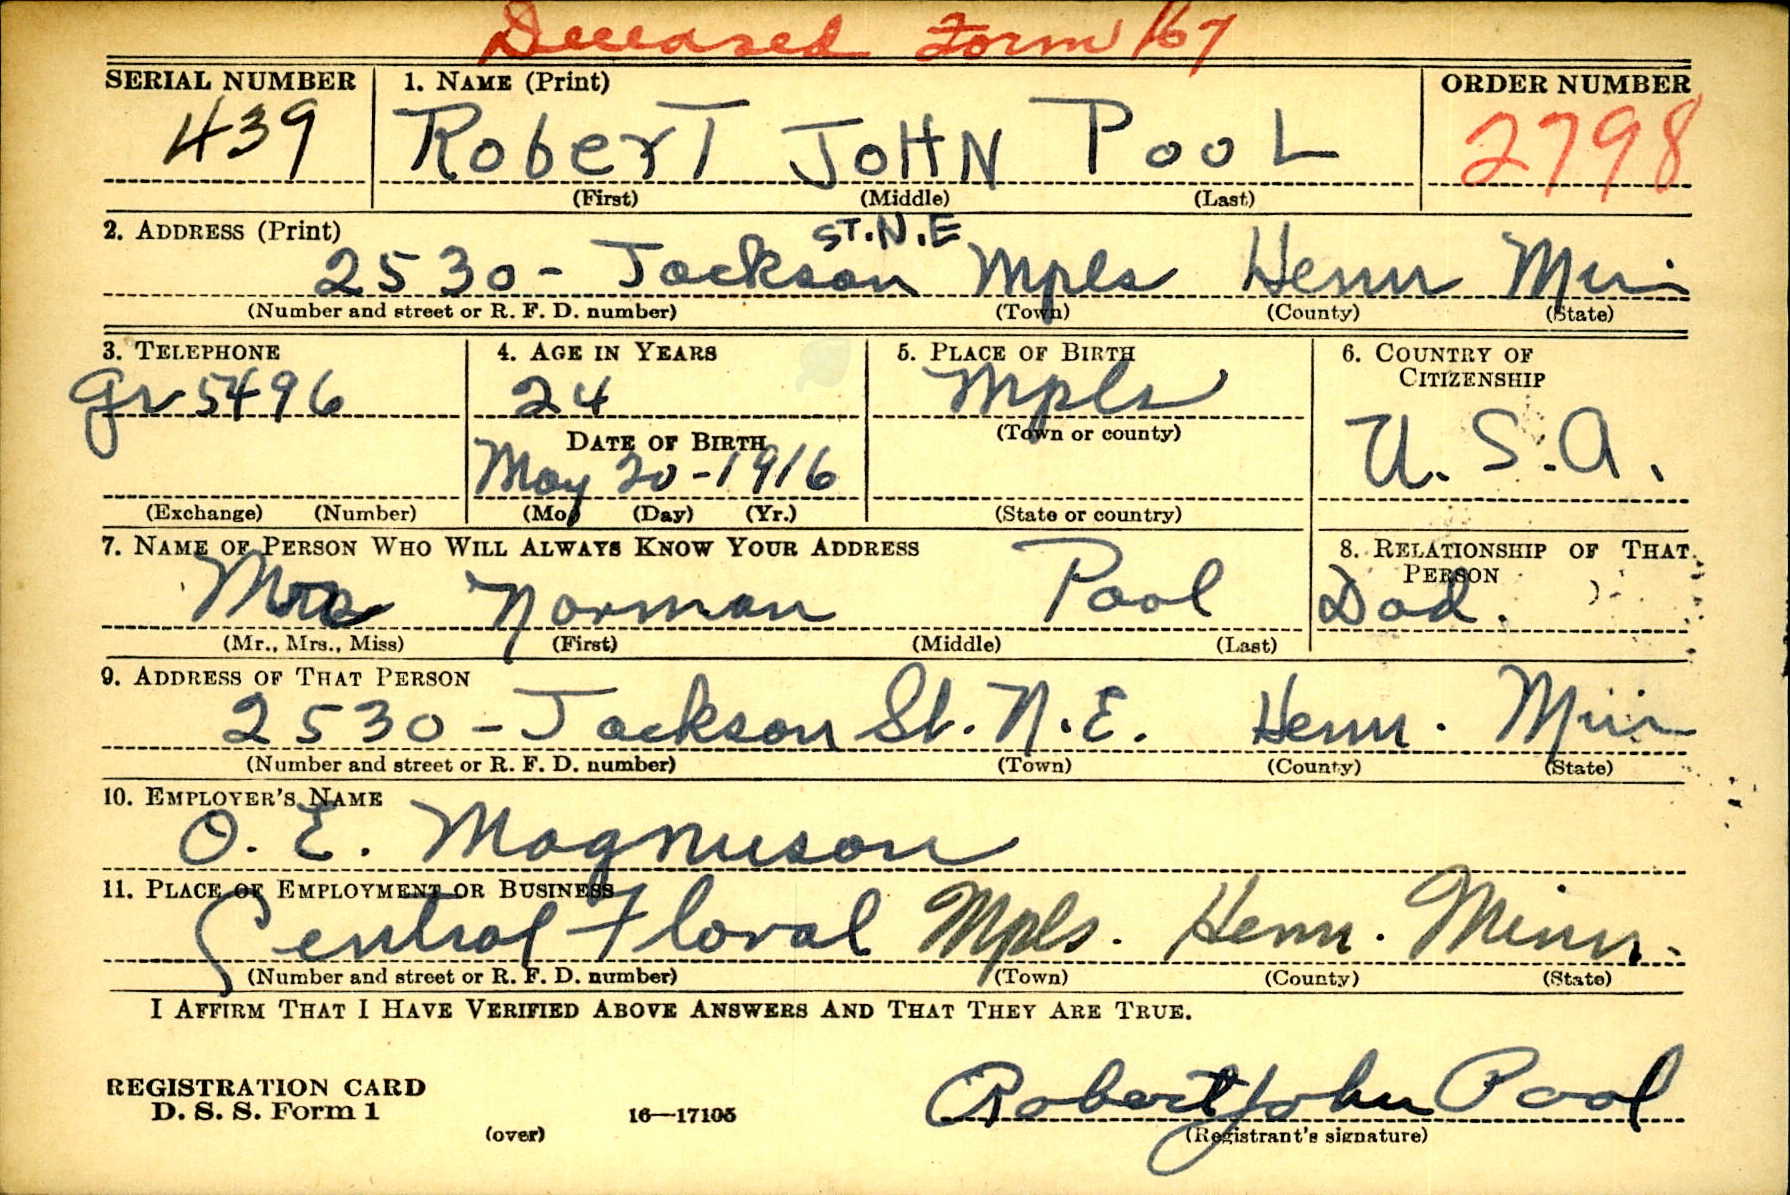 Deceased Form 167
SERIAL NUMBER 1. NAME (Print) ORDER NUMBER
439 Robert John Pool 2798
(First) (Middle) (Last)
2. ADDRESS (Print) ST. N.E
2530 - Jackson Mpls Henn Min
(Number and street or R. F. D. number) (Town) (County) (State)
3. TELEPHONE 4. AGE IN YEARS 5. PLACE OF BIRTH 6. COUNTRY OF
CITIZENSHIP
Gr 5496 24 Mpls
DATE OF BIRTH (Town or county) U. S. A.
May 20 - 1916
(Exchange) (Number) (Mo.) (Day) (Yr.) (State or country)
7. NAME OF PERSON WHO WILL ALWAYS KNOW YOUR ADDRESS 8. RELATIONSHIP OF THAT
PERSON
Norman Pool Dad.
(Mr., Mrs., Miss) (First) (Middle) (Last)
9. ADDRESS OF THAT PERSON
2530 - Jackson St. N.E. Henn. Min
(Number and street or R. F. D. number) (Town) (County) (State)
10. EMPLOYER'S NAME
O. E. Magnuson
11. PLACE OF EMPLOYMENT OR BUSINESS
Central Floral Mpls. Henn. Minn.
(Number and street or R. F. D. number) (Town) (County) (State)
I AFFIRM THAT I HAVE VERIFIED ABOVE ANSWERS AND THAT THEY ARE TRUE.
REGISTRATION CARD Robert John Pool
D. S. S. Form 1 16—17105
(over) (Registrant's signature)